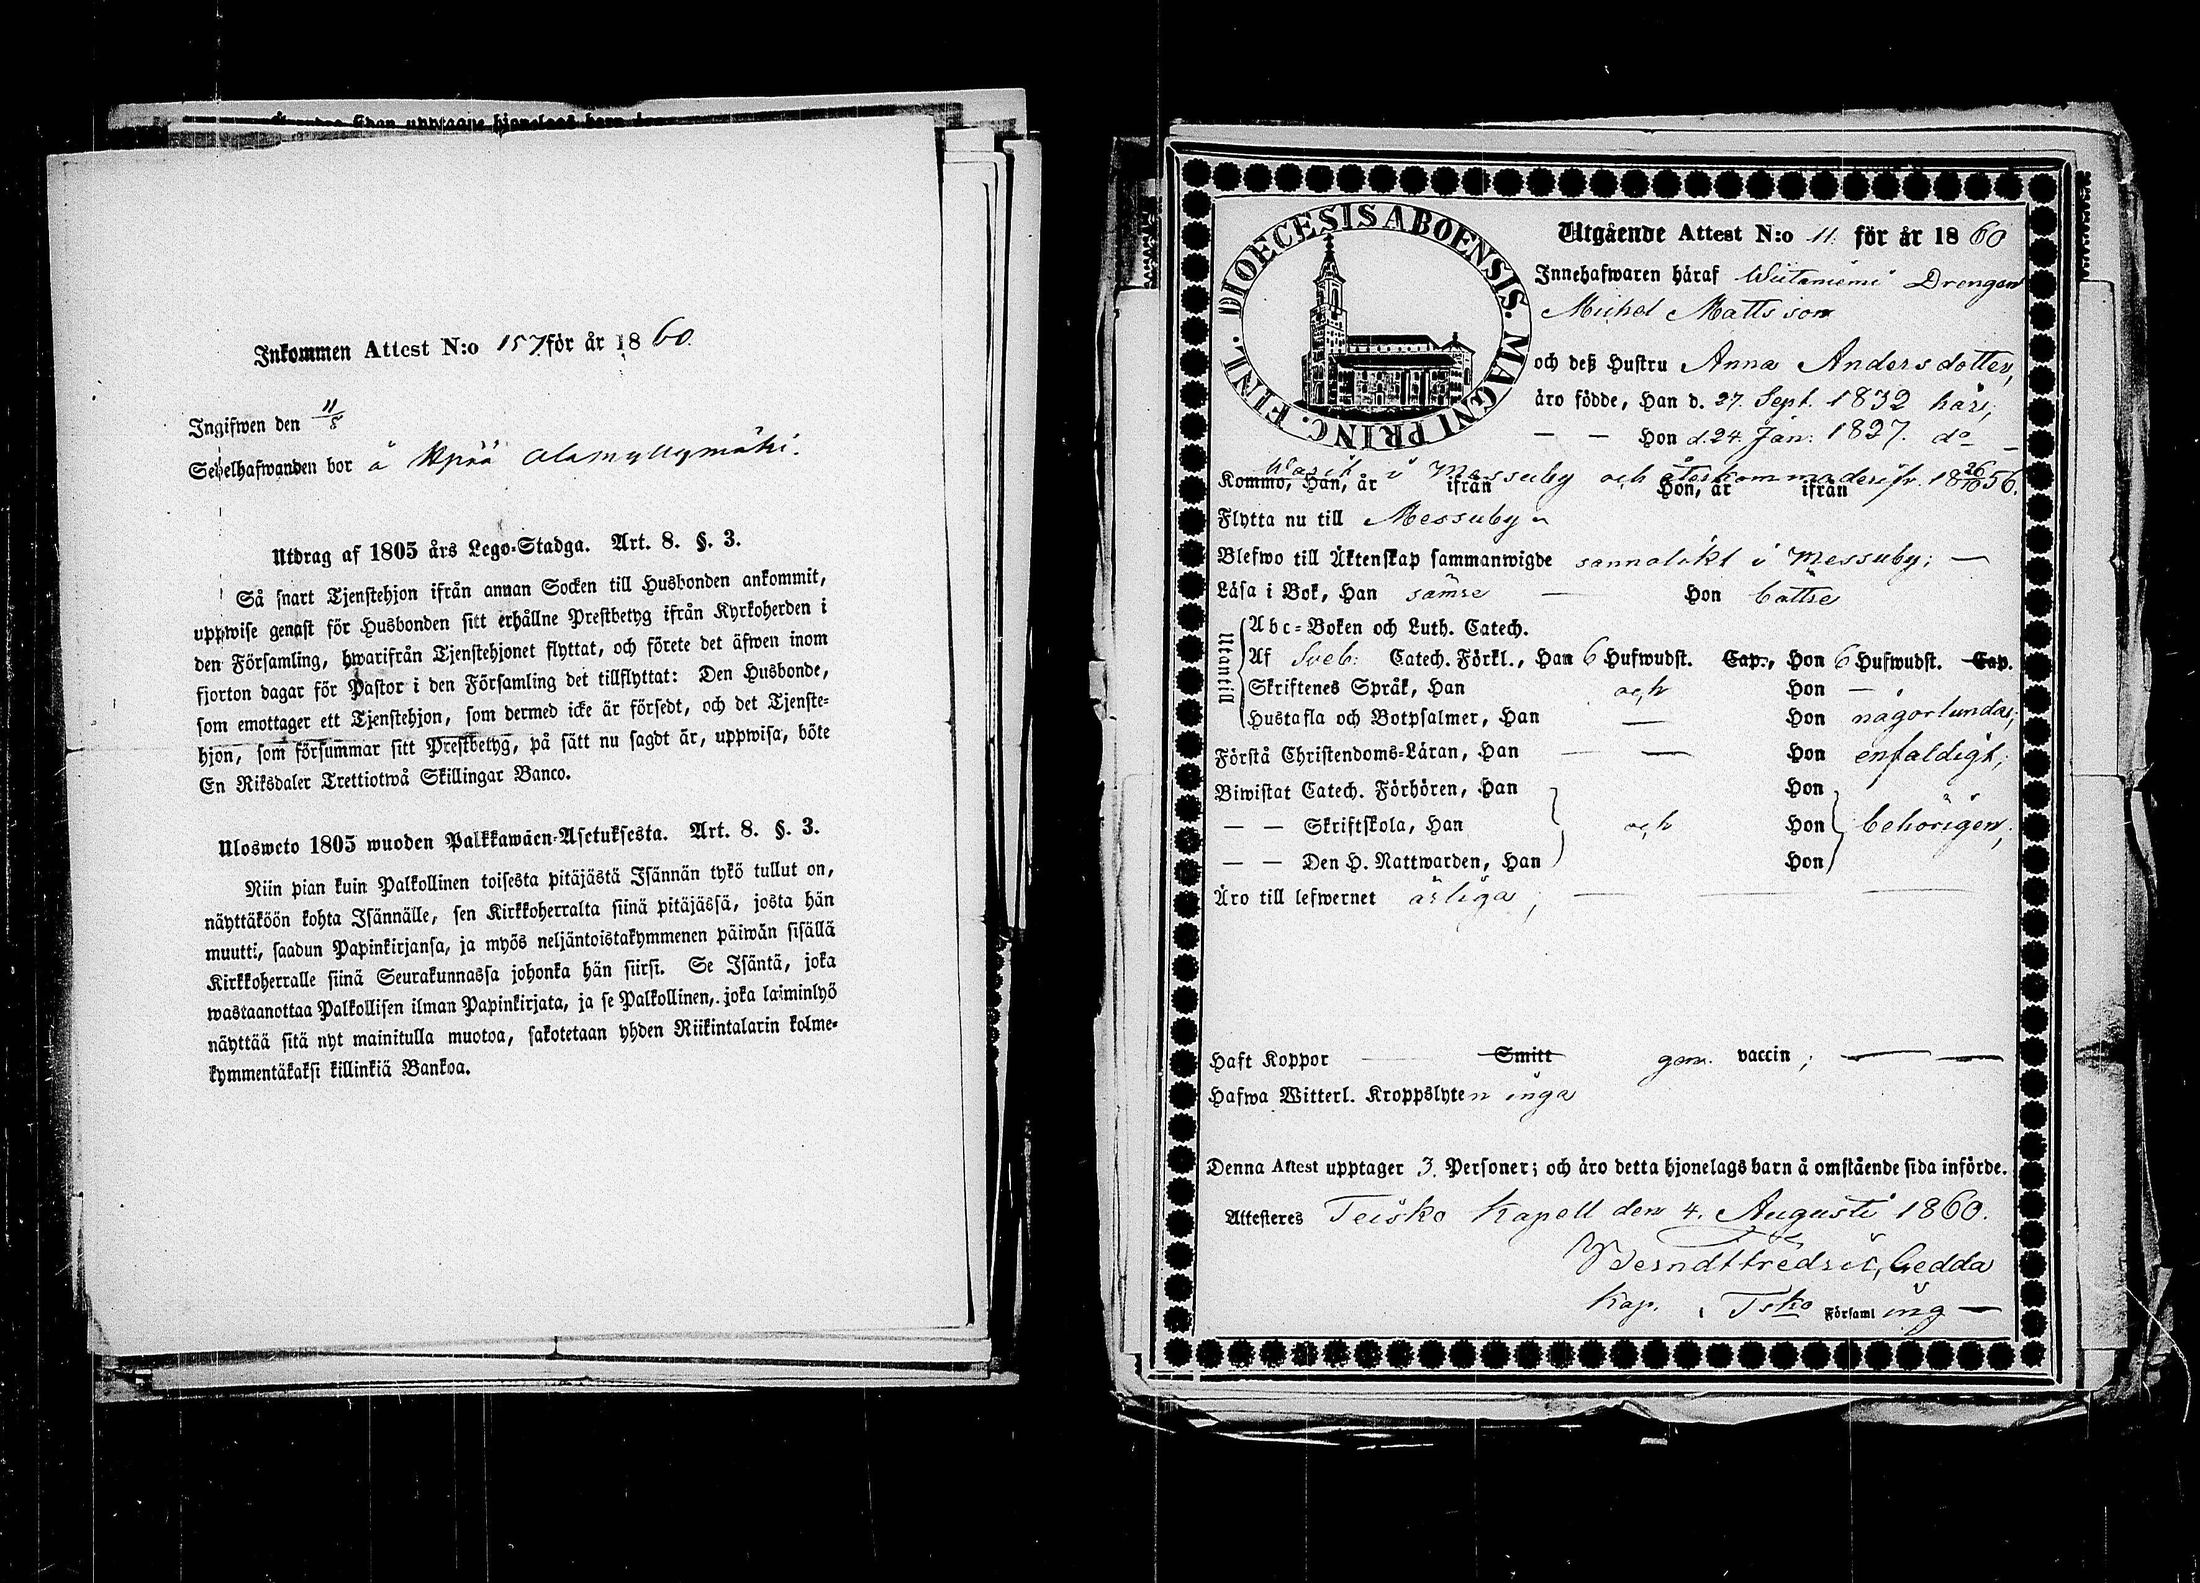 Inkommen Attest N:o 157 för år 1860
Ingifwen den 11/8
Sedelhafwanden bor å Alamyllymäki.
Utdrag af 1805 års Lego-Stadga. Art. 8. §. 3.
Så snart Tjenstehjon ifrån annan Socken till Husbonden ankommit,
uppwise genast för Husbonden sitt erhållne Prestbetyg ifrån Kyrkoherden i
den Församling, hwarifrån Tjenstehjonet flyttat, och förete det äfwen inom
fjorton dagar för Pastor i den Församling det tillflyttat: Den Husbonde,
som emottager ett Tjenstehjon, som dermed icke är försedt, och det Tjenste-
hjon, som försummar sitt Prestbetyg, på sätt nu sagdt är, uppwisa, böte
En Riksdaler Trettiotwå Skillingar Banco.
Ulosweto 1805 wuoden Palkkawäen-Asetuksesta. Art. 8. §. 3.
Niin pian kuin Palkollinen toisesta pitäjästä Isännän tykö tullut on,
näyttäköön kohta Isännälle, sen Kirkkoherralta siinä pitäjässä, josta hän
muutti, saadun Papinkirjansa, ja myös neljäntoistakymmenen päiwän sisällä
Kirkkoherralle siinä Seurakunnassa johonka hän siirsi. Se Isäntä, joka
wastaanottaa Palkollisen ilman Papinkirjata, ja se Palkollinen, joka laiminlyö
näyttää sitä nyt mainitulla muotoa, sakotetaan yhden Riikintalarin kolme-
kymmentäkaksi killinkiä Bankoa.
DIOECESIS ABOENSIS. MAGNI PRINC. FINL.
Utgående Attest N:o 11. för år 1860
Innehafwaren häraf Wiitaniemi Drengen
Michel Mattsson
och deß Hustru Anna Andersdotter,
äro födde, Han d. 27. Sept. 1832 här,
— — Hon d. 24. Jan. 1827. do —
Warit i Messuby och återkommo derifr. 18 26/10 56.
Kommo, Han, år ifrån Hon, år ifrån
Flytta nu till Messuby
Blefwo till Äktenskap sammanwigde sannolikt i Messuby; —
Läsa i Bok, Han sämre — Hon bättre
Utantill
Abc-Boken och Luth. Catech.
Af Sveb. Catech. Förkl., Han 6 Hufwudst. Cap., Hon 6 Hufwudst. Cap.
Skriftenes Språk, Han och Hon —
Hustafla och Botpsalmer, Han — Hon någorlunda;
Förstå Christendoms-Läran, Han — — Hon enfaldigt;
Biwistat Catech. Förhören, Han Hon
— — Skriftskola, Han och Hon behörigen;
— — Den H. Nattwarden, Han Hon
Äro till lefwernet ärliga; — — —
Haft Koppor — Smitt gm. vaccin; — —
Hafwa Witterl. Kroppslyten inga
Denna Attest upptager 3. Personer; och äro detta hjonelags barn å omstående sida införde.
Attesteres Teisko Kapell den 4. Augusti 1860.
Berndt Fredric Gedda
Kap. i Tsko Församling —